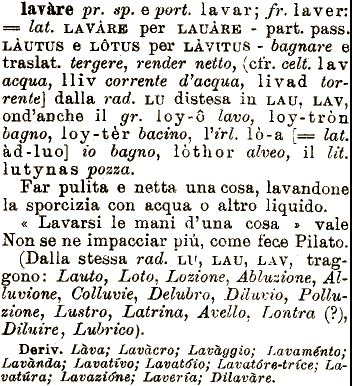 lavàre pr. sp. e port. lavar; fr. laver:
= lat. LAVÀRE per LAUÀRE - part. pass.
LÀUTUS e LÒTUS per LÀVITUS - bagnare e
traslat. tergere, render netto, (cfr. celt. lav
acqua, lliv corrente d'acqua, livad tor-
rente) dalla rad. LU distesa in LAU, LAV,
ond'anche il gr. loy-ô lavo, loy-tròn
bagno, loy-tèr bacino, l'irl. lò-a [= lat.
àd-luo] io bagno, lòthor alveo, il lit.
lutynas pozza.
Far pulita e netta una cosa, lavandone
la sporcizia con acqua o altro liquido.
« Lavarsi le mani d'una cosa » vale
Non se ne impacciar più, come fece Pilato.
(Dalla stessa rad. LU, LAU, LAV, trag-
gono: Lauto, Loto, Lozione, Abluzione, Al-
luvione, Colluvie, Delubro, Diluvio, Pollu-
zione, Lustro, Latrina, Avello, Lontra (?),
Diluire, Lubrico).
Deriv. Làva; Lavàcro; Lavàggio; Lavaménto;
Lavànda; Lavatívo; Lavatóio; Lavatóre-tríce; La-
vatúra; Lavazióne; Lavería; Dilavàre.